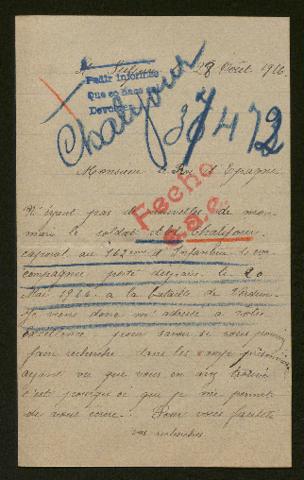 28 Août 1916
Pedir informes
Que se hace
Chalifour
37472
Monsieur le Roi d'Espagne
Fecho
N'ayant pas de nouvelles de mon
mari le soldat Chalifour
caporal au 162eme d'Infanterie
compagnie porté disparu le 20
Mai 1916 à la bataille de Verdun
Je viens donc m'adresse a votre
excellence pour savoir si vous pouvez
faire recherche dans les camps prisonniers
ayant vu que vous en avez trouvé
c'est pourquoi que je me permets
de vous écrire. Pour vous faciliter
vos recherches